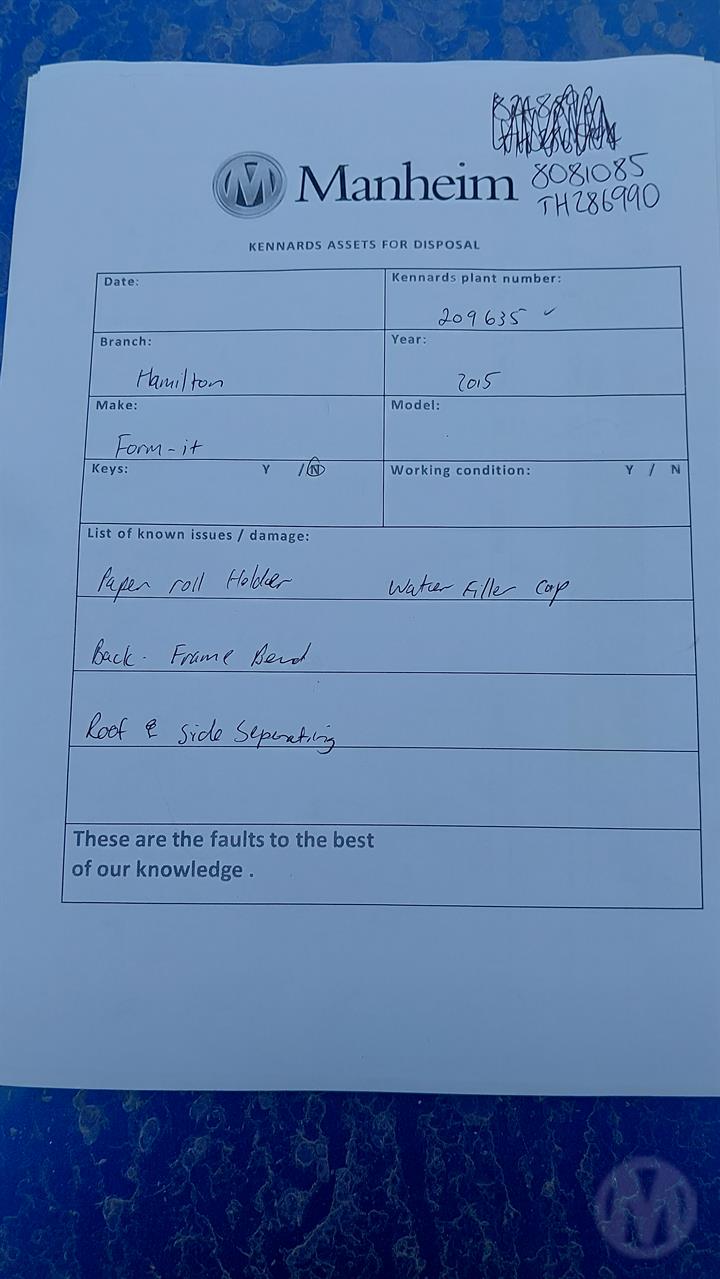 Manheim
8081085
TH286990
KENNARDS ASSETS FOR DISPOSAL
Date:
Kennards plant number:
209635 ✓
Branch:
Year:
Hamilton
2015
Make:
Model:
Form-it
Keys: Y / N
Working condition: Y / N
List of known issues / damage:
Paper roll Holder Water Filler Cap
Back. Frame Bend
Roof & side Seperating
These are the faults to the best
of our knowledge .